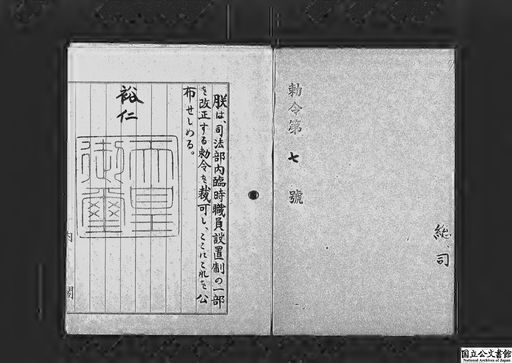 勅令第七號
総、司
朕は、司法部内臨時職員設置制の一部
を改正する勅令を裁可し、ここにこれを公
布せしめる。
裕仁
天皇
御璽
内閣
国立公文書館
National Archives of Japan